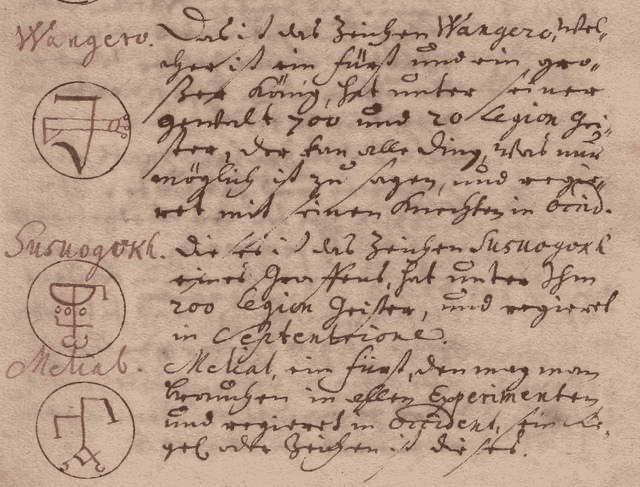 Wangero. Das ist das Zeichen Wangero, wel-
cher ist ein fürst und ein gro-
ßer König, hat unter seiner
gewalt 700 und 20 Legion Gei-
ster, der kan alle ding, was nur
möglich ist zu sagen, und regie-
ret mit seinen Knechten in Occid.
Susuogorh. Dieses ist das Zeichen Susuogorh
eines Graffens, hat unter Ihm
200 Legion Geister, und regieret
in Septentrione.
Meliab. Meliab, ein fürst, den mag man
brauchen in allen Experimenten
und regieret in Occident, sein Si-
gel oder Zeichen ist dieses.